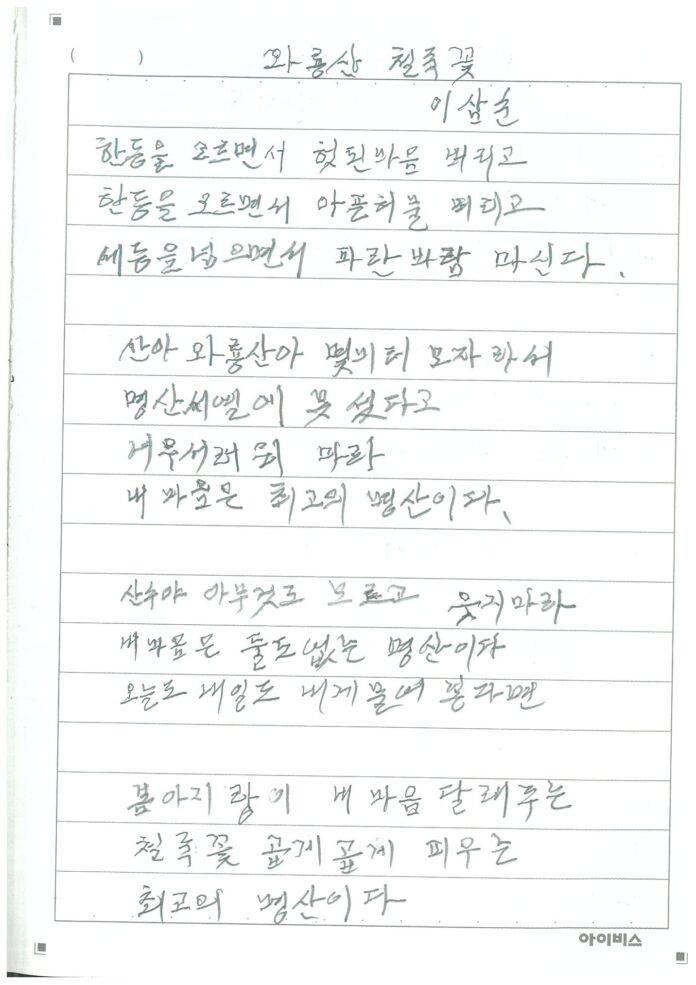 ( ) 와룡산 철쭉꽃
이삼순
한등을 오르면서 헛된마음 버리고
한등을 오르면서 아픈허물 버리고
세등을넘으면서 파란바람 마신다.
산아 와룡산아 몇미터 모자라서
명산써벨에 못 섰다고
서러워 마라
내 마음은 최고의 명산이다.
산수야 아무것도 모르고 웃지마라
내마음은 둘도없는 명산이다
오늘도 내일도 내게물어 본다면
봄아지랑이 내 마음 달래주는
철쭉꽃 곱게곱게 피우는
최고의 명산이다
아이비스